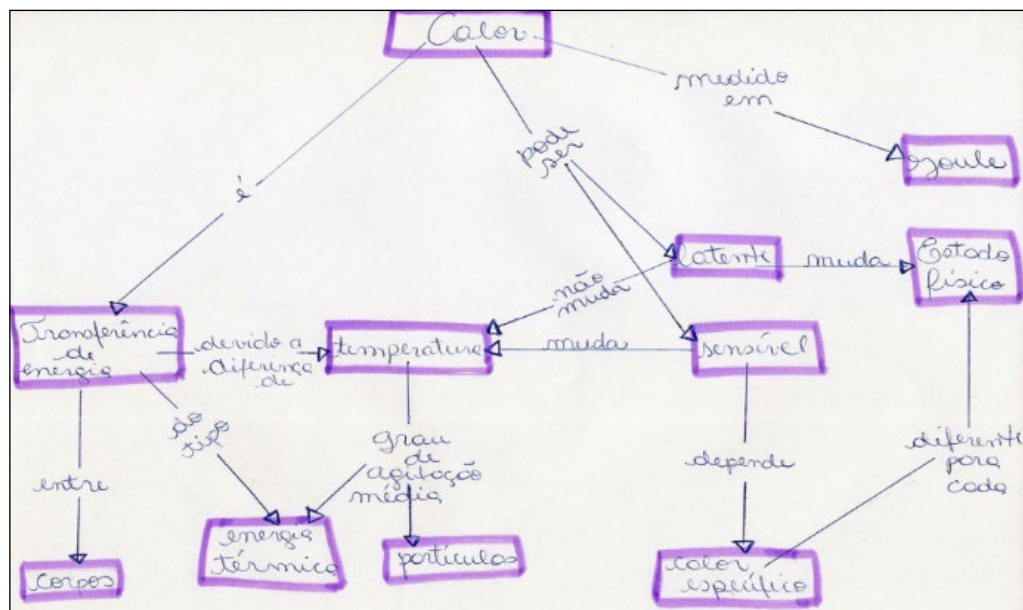 Calor
medido
em
pode
ser
Joule
é
latente
muda
Estado
físico
não
muda
Transferência
de
energia
devido a
diferença
de
temperatura
muda
sensível
do
tipo
grau
de
agitação
média
entre
depende
diferente
para
cada
energia
térmica
partículas
corpos
calor
específico